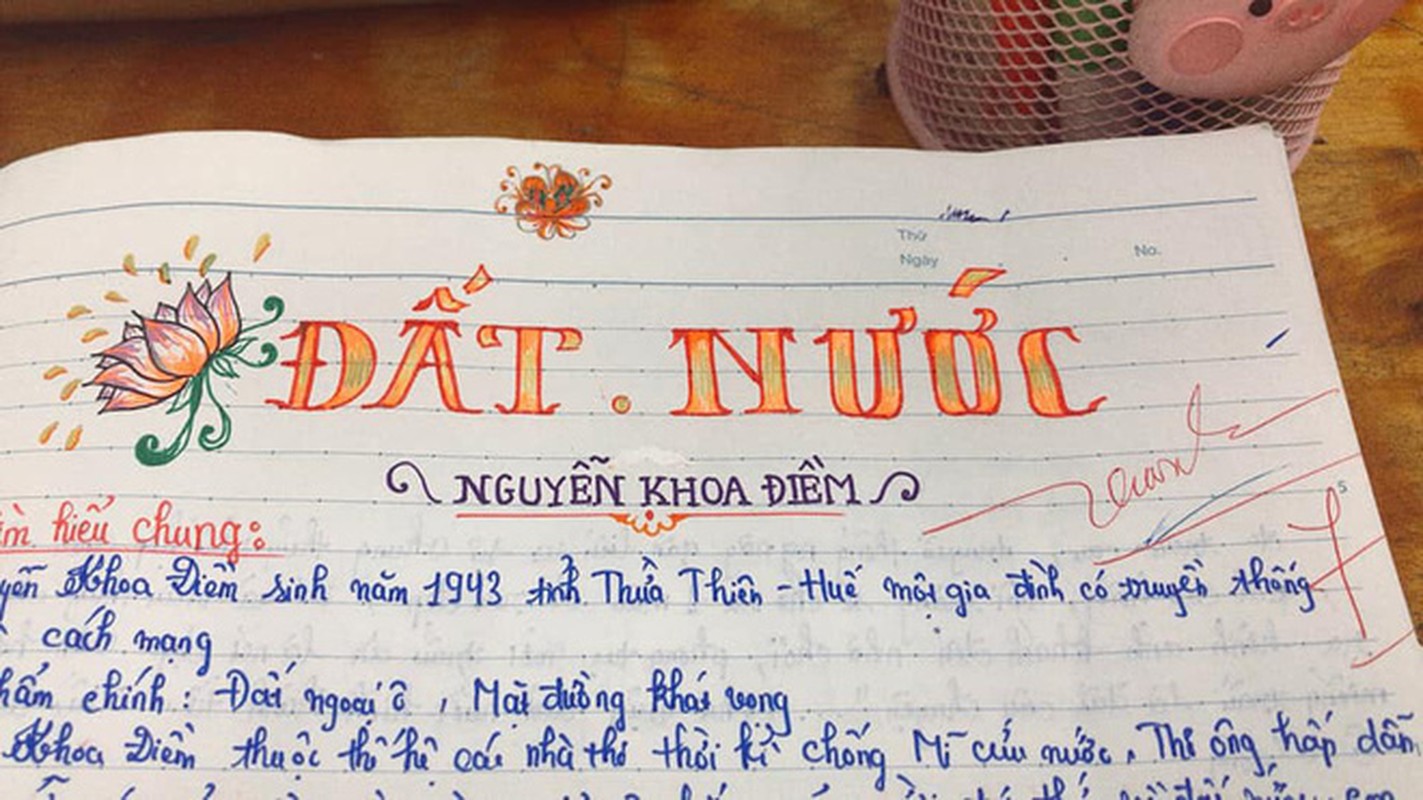 Thứ
Ngày No.
ĐẤT . NƯỚC
NGUYỄN KHOA ĐIỀM
5
ìm hiểu chung:
yễn Khoa Điềm sinh năm 1943 tỉnh Thừa Thiên - Huế một gia đình có truyền thống
cách mạng
hẩm chính: Đất ngoại ô, Mặt đường khát vọng
Khoa Điềm thuộc thế hệ các nhà thơ thời kì chống Mĩ cứu nước. Thơ ông hấp dẫn